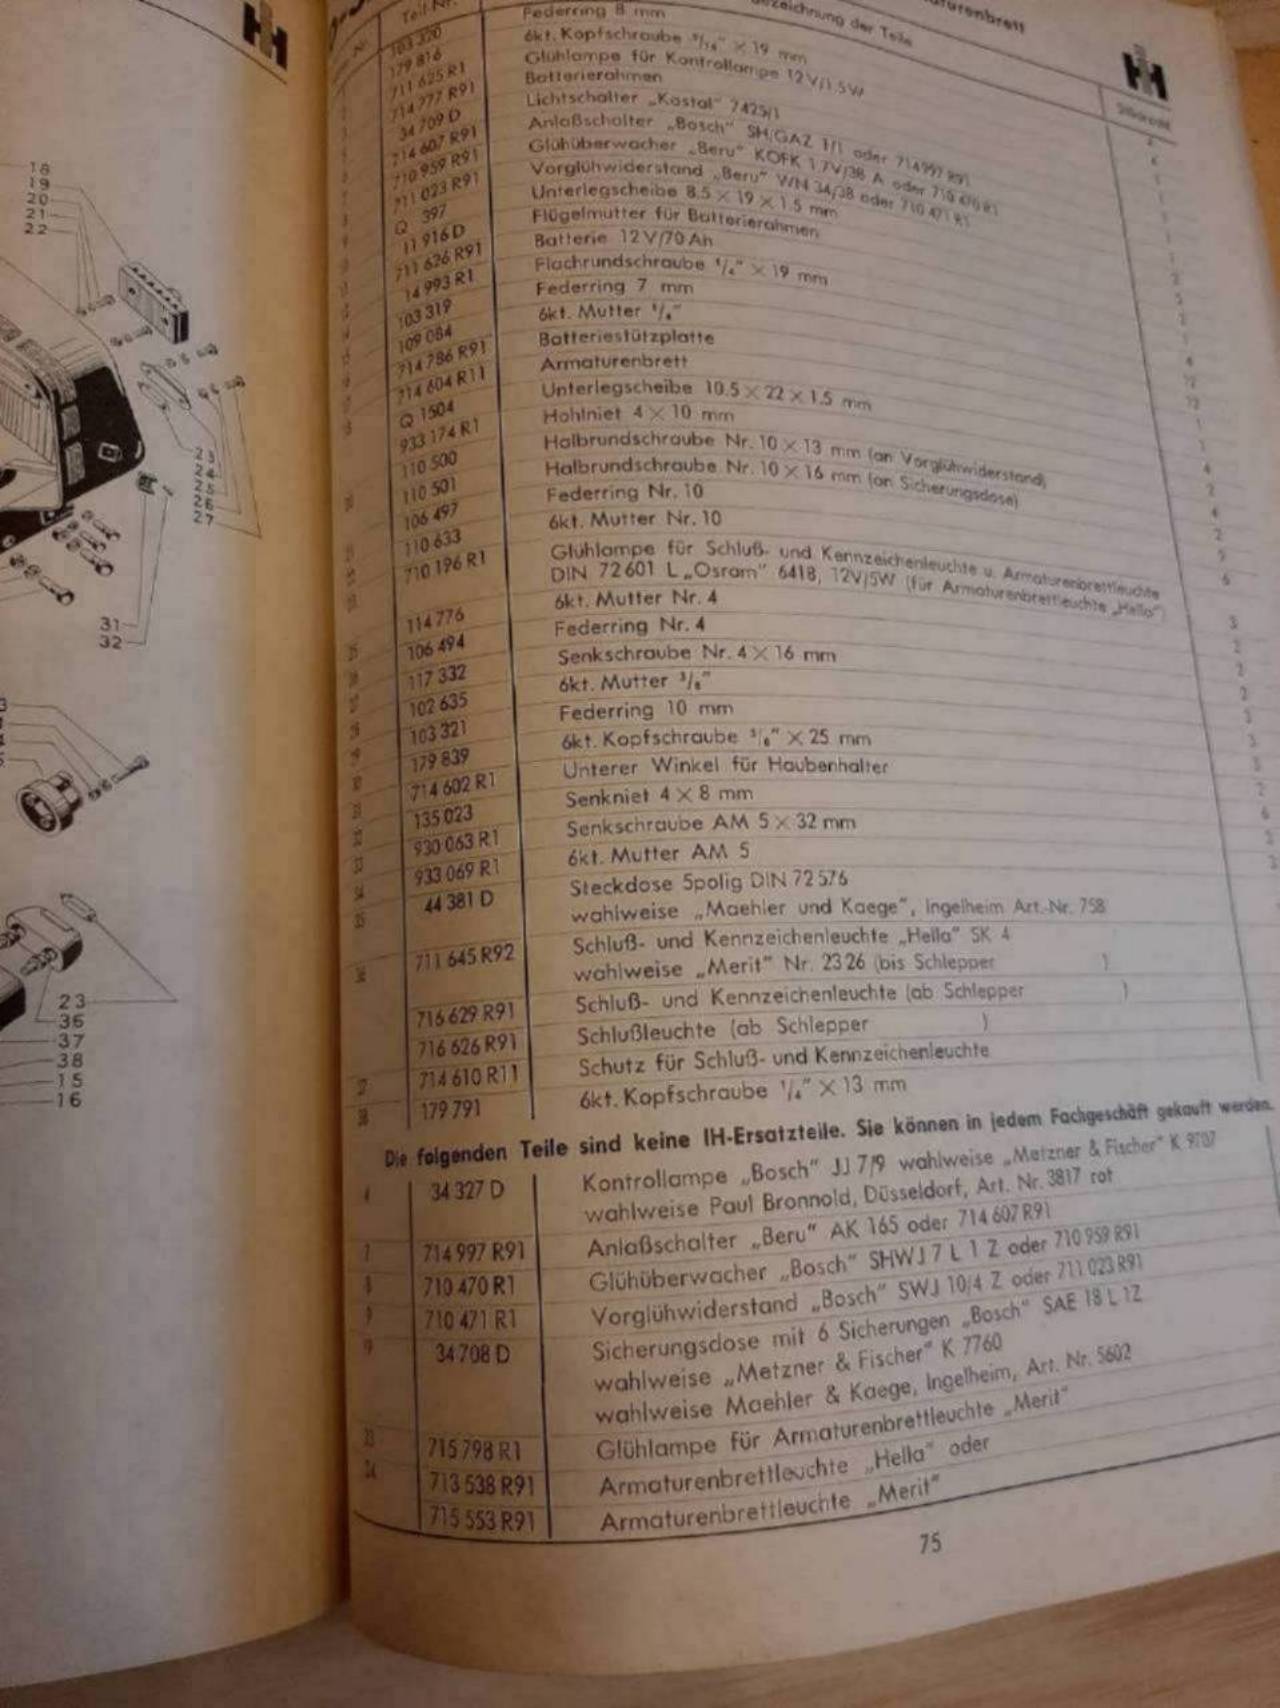 Teil-Nr.
zeichnung der Teile
aturenbrett
103 320 Federring 8 mm
179 816 6kt. Kopfschraube ⁵/₁₆" × 19 mm
711 625 R1 Glühlampe für Kontrollampe 12 V/1.5W
714 777 R91 Batterierahmen
34 709 D Lichtschalter „Kostal" 7425/1
714 607 R91 Anlaßschalter „Bosch" SH/GAZ 1/1 oder 714997 R91
710 959 R91 Glühüberwacher „Beru" KOFK 1.7V/38 A oder 710 470 R1
711 023 R91 Vorglühwiderstand „Beru" WN 34/38 oder 710 471 R1
Q 397 Unterlegscheibe 8.5 × 19 × 1.5 mm
11 916 D Flügelmutter für Batterierahmen
711 626 R91 Batterie 12 V/70 Ah
14 993 R1 Flachrundschraube ¹/₄" × 19 mm
103 319 Federring 7 mm
109 084 6kt. Mutter ¹/₄"
714 786 R91 Batteriestützplatte
714 604 R11 Armaturenbrett
Q 1504 Unterlegscheibe 10.5 × 22 × 1.5 mm
933 174 R1 Hohlniet 4 × 10 mm
110 500 Halbrundschraube Nr. 10 × 13 mm (an Vorglühwiderstand)
110 501 Halbrundschraube Nr. 10 × 16 mm (an Sicherungsdose)
106 497 Federring Nr. 10
110 633 6kt. Mutter Nr. 10
710 196 R1 Glühlampe für Schluß- und Kennzeichenleuchte u. Armaturenbrettleuchte
DIN 72 601 L „Osram" 6418, 12V/5W (für Armaturenbrettleuchte „Hella")
114 776 6kt. Mutter Nr. 4
106 494 Federring Nr. 4
117 332 Senkschraube Nr. 4 × 16 mm
102 635 6kt. Mutter ³/₈"
103 321 Federring 10 mm
179 839 6kt. Kopfschraube ³/₈" × 25 mm
714 602 R1 Unterer Winkel für Haubenhalter
135 023 Senkniet 4 × 8 mm
930 063 R1 Senkschraube AM 5 × 32 mm
933 069 R1 6kt. Mutter AM 5
44 381 D Steckdose 5polig DIN 72 576
wahlweise „Maehler und Kaege", Ingelheim Art.-Nr. 758
711 645 R92 Schluß- und Kennzeichenleuchte „Hella" SK 4
wahlweise „Merit" Nr. 23 26 (bis Schlepper )
716 629 R91 Schluß- und Kennzeichenleuchte (ab Schlepper )
716 626 R91 Schlußleuchte (ab Schlepper )
714 610 R11 Schutz für Schluß- und Kennzeichenleuchte
38 179 791 6kt. Kopfschraube ¹/₄" × 13 mm
Die folgenden Teile sind keine IH-Ersatzteile. Sie können in jedem Fachgeschäft gekauft werden.
34 327 D Kontrollampe „Bosch" JJ 7/9 wahlweise „Metzner & Fischer" K 9707
wahlweise Paul Bronnold, Düsseldorf, Art. Nr. 3817 rot
7 714 997 R91 Anlaßschalter „Beru" AK 165 oder 714 607 R91
8 710 470 R1 Glühüberwacher „Bosch" SHWJ 7 L 1 Z oder 710 959 R91
9 710 471 R1 Vorglühwiderstand „Bosch" SWJ 10/4 Z oder 711 023 R91
34 708 D Sicherungsdose mit 6 Sicherungen „Bosch" SAE 18 L 1Z
wahlweise „Metzner & Fischer" K 7760
wahlweise Maehler & Kaege, Ingelheim, Art. Nr. 5602
715 798 R1 Glühlampe für Armaturenbrettleuchte „Merit"
713 538 R91 Armaturenbrettleuchte „Hella" oder
715 553 R91 Armaturenbrettleuchte „Merit"
75
18
19
20
21
22
23
24
25
26
27
31
32
23
36
37
38
15
16